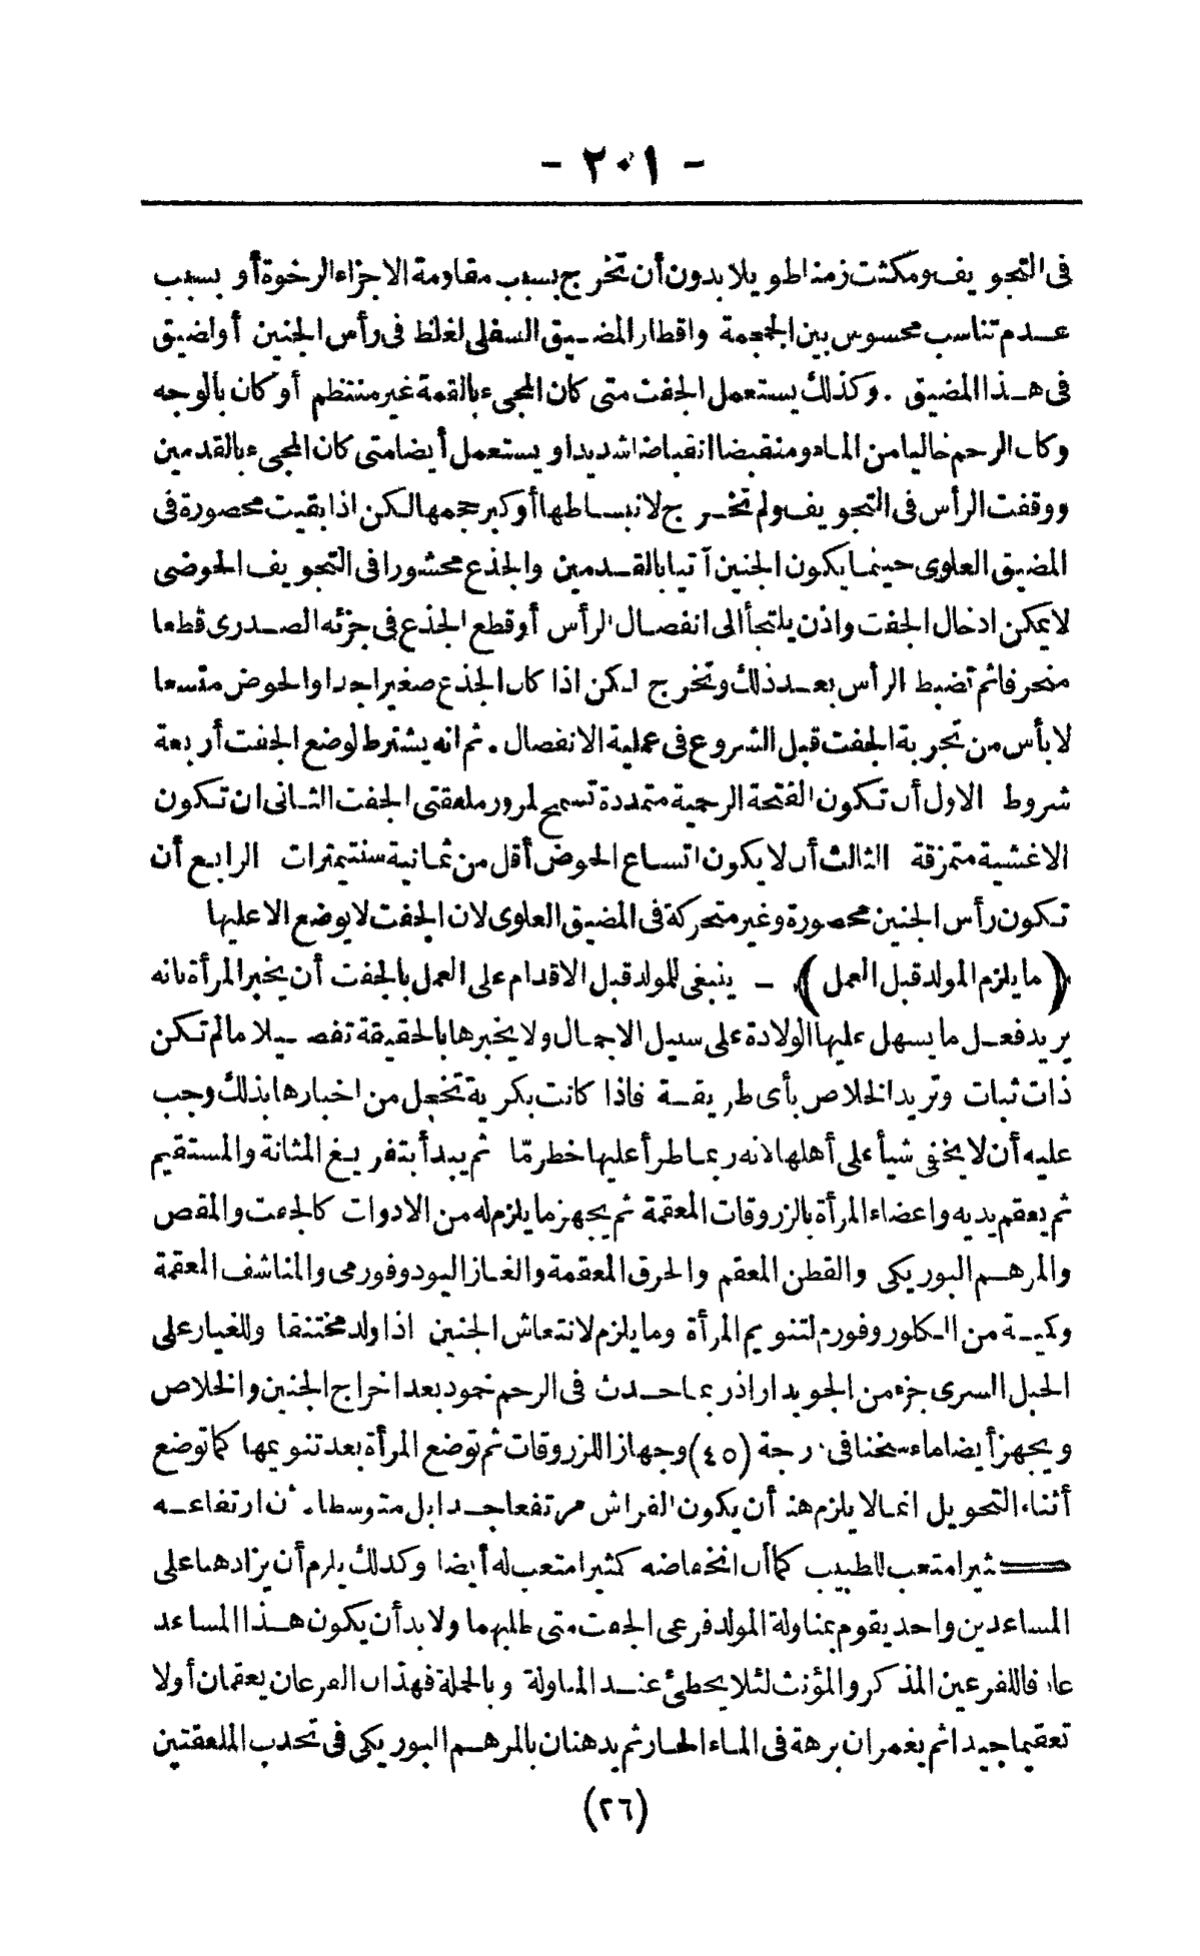 - ٢٠١ -
فى التجويف ومكثت زمنا طويلا بدون أن تخرج بسبب مقاومة الاجزاء الرخوة أو بسبب
عدم تناسب محسوس بين الجمجمة واقطار المضيق السفلى لغلظ فى رأس الجنين أو لضيق
فى هذا المضيق . وكذلك يستعمل الجفت متى كان المجىء بالقمة غير منتظم أو كان بالوجه
وكان الرحم خاليا من الماء ومنقبضا انقباضا شديدا ويستعمل أيضا متى كان المجىء بالقدمين
ووقفت الرأس فى التجويف ولم تخرج لانبساطها أو كبر حجمها لكن اذا بقيت محصورة فى
المضيق العلوى حينما يكون الجنين آتيا بالقدمين والجذع محشورا فى التجويف الحوضى
لا يمكن ادخال الجفت واذن يلتجأ الى انفصال الرأس أو قطع الجذع فى جزئه الصدرى قطعا
منحرفا ثم تضبط الرأس بعد ذلك وتخرج لكن اذا كان الجذع صغيرا جدا والحوض متسعا
لا بأس من تجربة الجفت قبل الشروع فى عملية الانفصال . ثم انه يشترط لوضع الجفت أربعة
شروط الاول أن تكون الفتحة الرحمية متمددة تسمح لمرور ملعقتى الجفت الثانى ان تكون
الاغشية متمزقة الثالث أن لا يكون اتساع الحوض أقل من ثمانية سنتيمترات الرابع أن
تكون رأس الجنين محصورة وغير متحركة فى المضيق العلوى لان الجفت لا يوضع الا عليها
(ما يلزم المولد قبل العمل) - ينبغى للمولد قبل الاقدام على العمل بالجفت أن يخبر المرأة بانه
يريد فعل ما يسهل عليها الولادة على سبيل الاجمال ولا يخبرها بالحقيقة تفصيلا ما لم تكن
ذات ثبات وتريد الخلاص بأى طريقة فاذا كانت بكرية تخجل من اخبارها بذلك وجب
عليه أن لا يخفى شيأ على أهلها لانه ربما طرأ عليها خطر مّا ثم يبدأ بتفريغ المثانة والمستقيم
ثم يعقم يديه واعضاء المرأة بالزروقات المعقمة ثم يجهز ما يلزم له من الادوات كالجفت والمقص
والمرهم البوريكى والقطن المعقم والخرق المعقمة والغاز اليودوفورمى والمناشف المعقمة
وكمية من الكلوروفورم لتنويم المرأة وما يلزم لانتعاش الجنين اذا ولد مختنقا وللغيار على
الحبل السرى جزء من الجويدار اذ ربما حدث فى الرحم خمود بعد اخراج الجنين والخلاص
ويجهز أيضا ماء سخنا فى درجة (٤٥) وجهاز اللزروقات ثم توضع المرأة بعد تنويمها كما توضع
أثناء التحويل انما لا يلزم هنا أن يكون الفراش مرتفعا جدا بل متوسطا لان ارتفاعه
كثيرا متعب للطبيب كما أن انخفاضه كثيرا متعب له أيضا وكذلك يلزم أن يزاد هنا على
المساعدين واحد يقوم بمناولة المولد فرعى الجفت متى طلبهما ولا بد أن يكون هذا المساعد
عارفا للفرعين المذكر والمؤنث لئلا يخطئ عند المناولة وبالجملة فهذان الفرعان يعقمان أولا
تعقيما جيدا ثم يغمران برهة فى الماء الحار ثم يدهنان بالمرهم البوريكى فى تحدب الملعقتين
(٢٦)